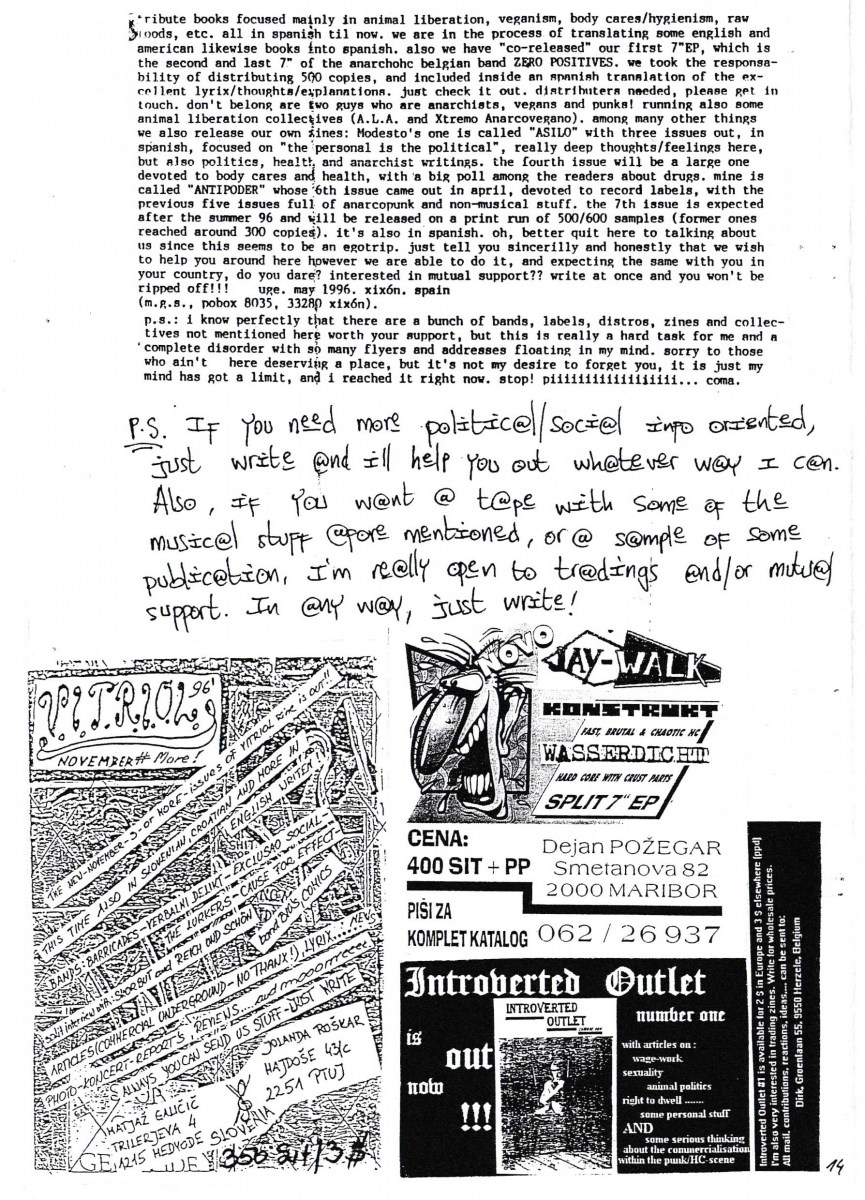 tribute books focused mainly in animal liberation, veganism, body cares/hygienism, raw
foods, etc. all in spanish til now. we are in the process of translating some english and
american likewise books into spanish. also we have "co-released" our first 7"EP, which is
the second and last 7" of the anarchohc belgian band ZERO POSITIVES. we took the responsa-
bility of distributing 500 copies, and included inside an spanish translation of the ex-
cellent lyrix/thoughts/explanations. just check it out. distributers needed, please get in
touch. don't belong are two guys who are anarchists, vegans and punks! running also some
animal liberation collectives (A.L.A. and Xtremo Anarcovegano). among many other things
we also release our own zines: Modesto's one is called "ASILO" with three issues out, in
spanish, focused on "the personal is the political", really deep thoughts/feelings here,
but also politics, health and anarchist writings. the fourth issue will be a large one
devoted to body cares and health, with a big poll among the readers about drugs. mine is
called "ANTIPODER" whose 6th issue came out in april, devoted to record labels, with the
previous five issues full of anarcopunk and non-musical stuff. the 7th issue is expected
after the summer 96 and will be released on a print run of 500/600 samples (former ones
reached around 300 copies). it's also in spanish. oh, better quit here to talking about
us since this seems to be an egotrip. just tell you sincerilly and honestly that we wish
to help you around here however we are able to do it, and expecting the same with you in
your country, do you dare? interested in mutual support?? write at once and you won't be
ripped off!!! uge. may 1996. xixón. spain
(m.g.s., pobox 8035, 33280 xixón).
p.s.: i know perfectly that there are a bunch of bands, labels, distros, zines and collec-
tives not mentiioned here worth your support, but this is really a hard task for me and a
complete disorder with so many flyers and addresses floating in my mind. sorry to those
who ain't here deserving a place, but it's not my desire to forget you, it is just my
mind has got a limit, and i reached it right now. stop! piiiiiiiiiiiiiiiiii... coma.
P.S. If you need more politic@l/soci@l info oriented,
just write @nd i'll help you out wh@tever w@y I c@n.
Also, if you w@nt @ t@pe with some of the
music@l stuff @fore mentioned, or @ s@mple of some
public@tion, I'm re@lly open to tr@dings @nd/or mutu@l
support. In @ny w@y, just write!
V.I.T.R.I.O.L. 96'
NOVEMBER # More!
THE NEW-NOVEMBER-3-OT MORE-ISSUES OF VITRIOL zine is out!!
THIS TIME ALSO IN SLOVENIAN, CROATIAN AND MORE IN
ENGLISH WRITEN!
BANDS: BARRICADES-VERBALNI DELIKT-EXCLUSAO SOCIAL
SHIT
THE LURKERS-CAUSE FOR EFFECT
split interview with: SHORBUT and REICH UND SCHÖN
band BIO'S COMICS
ARTICLES (COMMERCIAL UNDERGROUND-NO THANX!), LYRIX... NEWS
PHOTO-KONCERT-REPORTS, REVIEWS... and mooorrreeee
AS ALWAYS YOU CAN SEND US STUFF-JUST WRITE
JOLANDA ROŠKAR
HAJDOŠE 43/c
2251 PTUJ
MATJAŽ GALIČIČ
TRILERJEVA 4
1215 MEDVODE
SLOVENIA
350 SIT/3$
NOVO
JAY-WALK
KONSTRUKT
FAST, BRUTAL & CHAOTIC HC
WASSERDICHT
HARD CORE WITH CRUST PARTS
SPLIT 7" EP
CENA:
400 SIT + PP
Dejan POŽEGAR
Smetanova 82
2000 MARIBOR
PIŠI ZA
KOMPLET KATALOG
062 / 26 937
Introverted Outlet
number one
is
out
now
!!!
INTROVERTED
OUTLET
with articles on :
wage-work
sexuality
animal politics
right to dwell .......
some personal stuff
AND
some serious thinking
about the commercialisation
within the punk/HC-scene
Introverted Outlet #1 is available for 2 $ in Europe and 3 $ elsewhere (ppd)
I'm also very interested in trading zines. Write for wholesale prices.
All mail, contributions, reactions, ideas..... can be sent to:
Dirk, Groenlaan 55, 9550 Herzele, Belgium
14